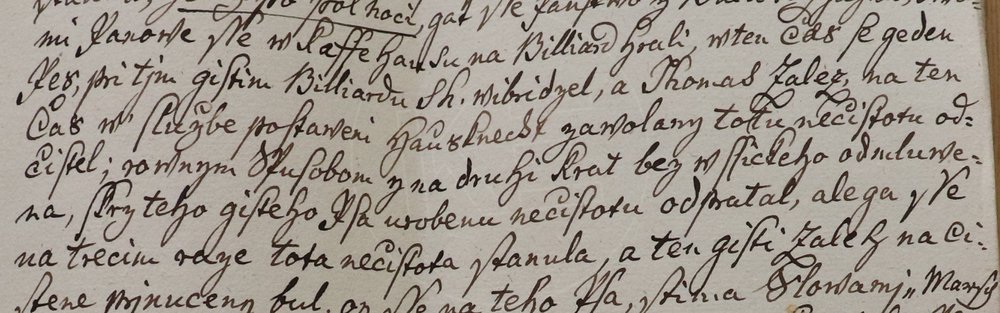 pol noci, gak se
mi Panowe se w Kaffe hausu na Billiard hrali, w ten čas se geden
Pes, pri tjm gistim Billiardu Sh. wibridzel, a Thomas Zaletz, na ten
Čas w službe postaweni Hausknecht zawolany tottu nečistotu od=
čistel; rownym Spusobom y na druhi krat bez wssickeho odmluwe=
na, skrz teho gisteho Psa urobenu nečistotu odpratal, ale ga se
na trecim raze tota nečistota stanula, a ten gisti Zaletz na či=
stene prjnuceny bul, on se na teho Psa, s tima Slowami „Marsch